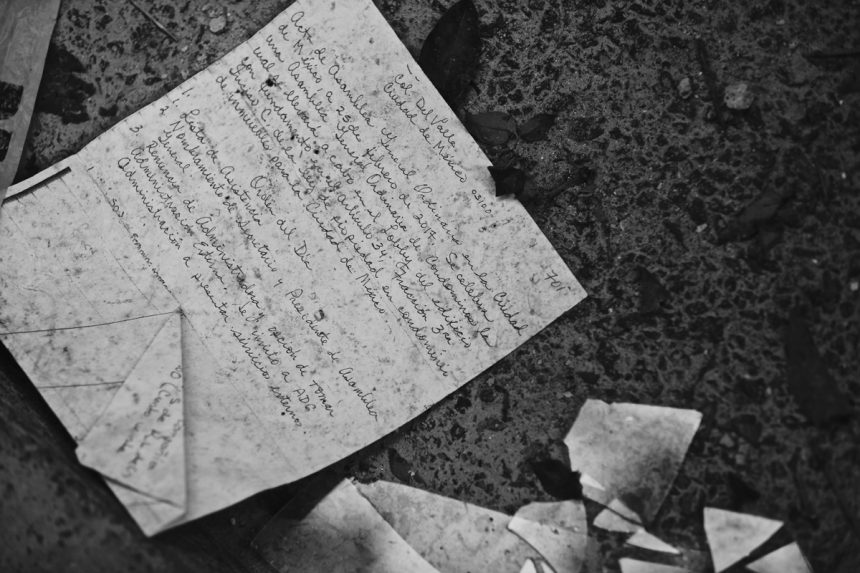 Col. Del Valle
Ciudad de México 03100.
701
Acta de Asamblea General Ordinaria en la Ciudad
de México a 25 de febrero de 2017. Se celebra
una Asamblea General Ordinaria de Condominios la
cual es llevada a cabo en el lobby del edificio,
con fundamento en el artículo 34, Fracción 3ra
Inciso C de la Ley de propiedad en condominio
de inmuebles para la Ciudad de México.
Orden del Día
1. Lista de Asistencia
2. Nombramiento de Secretario y Presidente de Asamblea
General
3. Renuncia de Administradora y opción de tomar
Administración Externa. Se invitó a ADG
Administración a presentar servicios externo.